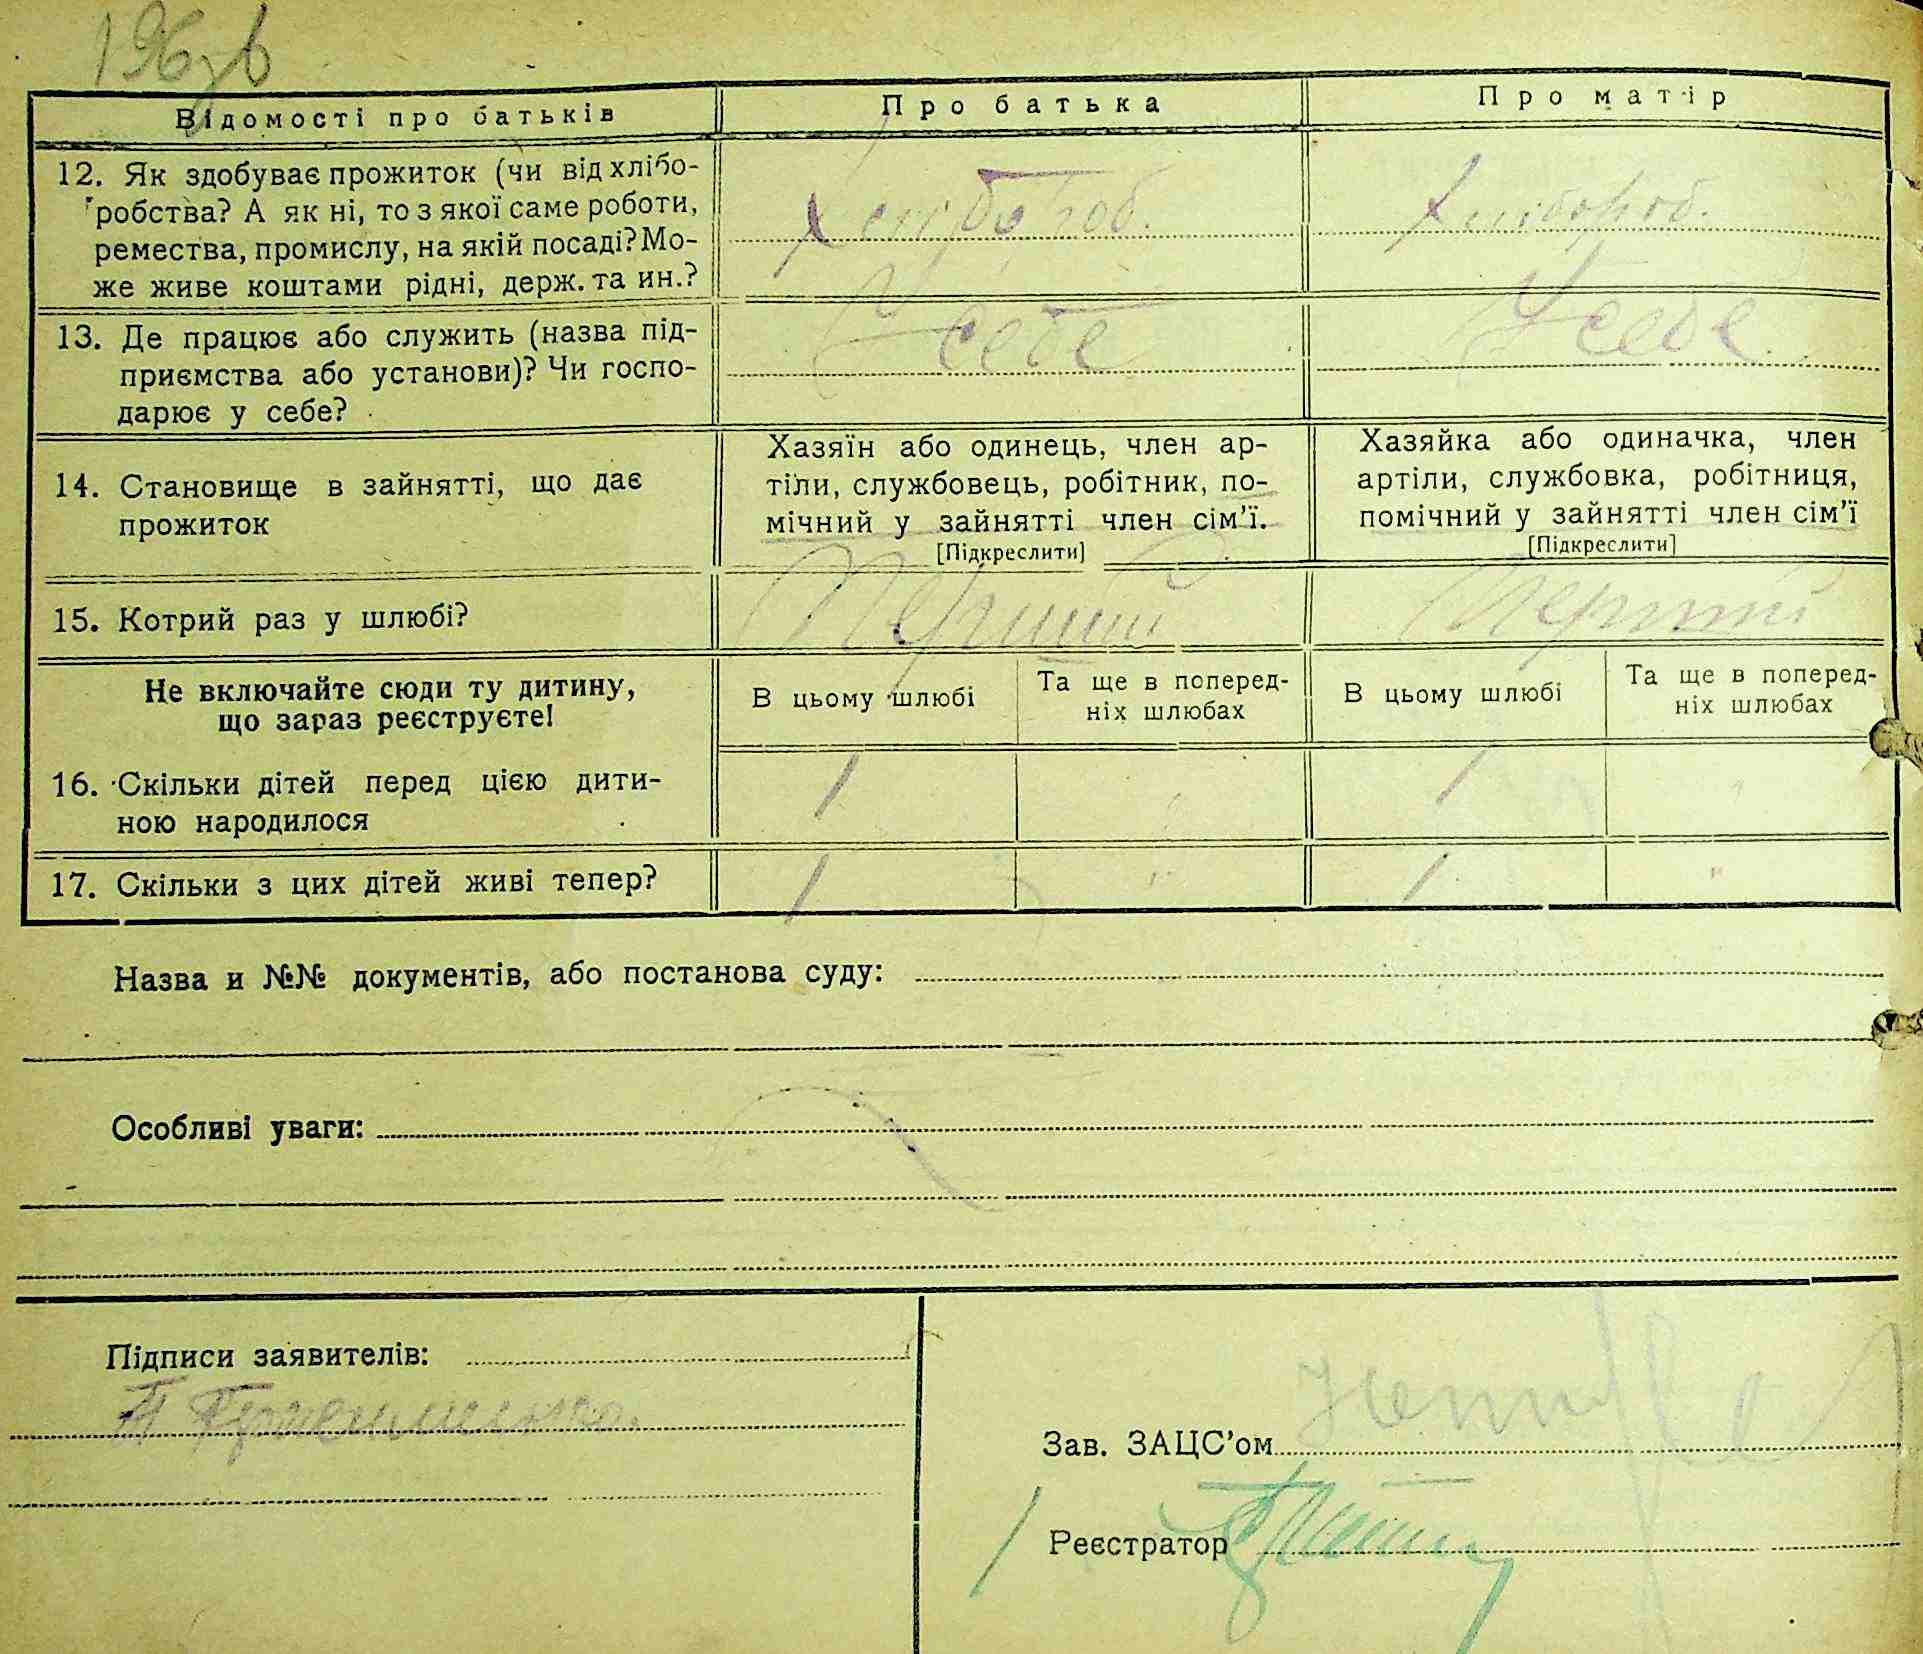 196зв
Відомості про батьків
Про батька
Про матір
12. Як здобуває прожиток (чи від хлібо-
робства? А як ні, то з якої саме роботи,
ремества, промислу, на якій посаді? Мо-
же живе коштами рідні, держ. та ин.?
Хлібороб.
Хлібороб.
13. Де працює або служить (назва під-
приємства або установи)? Чи госпо-
дарює у себе?
У себе
У себе
14. Становище в зайнятті, що дає
прожиток
Хазяїн або одинець, член ар-
тіли, службовець, робітник, по-
мічний у зайнятті член сім'ї.
[Підкреслити]
Хазяйка або одиначка, член
артіли, службовка, робітниця,
помічний у зайнятті член сім'ї
[Підкреслити]
15. Котрий раз у шлюбі?
Перший
Перший
Не включайте сюди ту дитину,
що зараз реєструєте!
В цьому шлюбі
Та ще в поперед-
ніх шлюбах
В цьому шлюбі
Та ще в поперед-
ніх шлюбах
16. Скільки дітей перед цією дити-
ною народилося
1 " 1 "
17. Скільки з цих дітей живі тепер?
1 " 1 "
Назва и №№ документів, або постанова суду:
Особливі уваги:
Підписи заявителів:
П
Зав. ЗАЦС'ом
Реєстратор